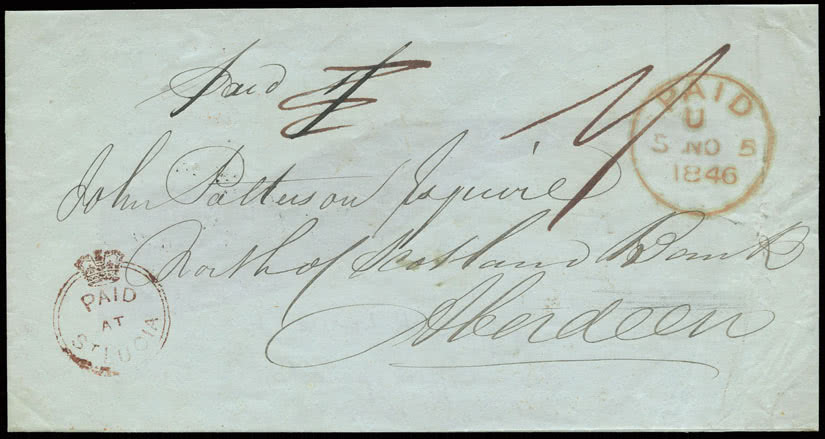 Paid
PAID
U
5 NO 5
1846
John Patterson Esquire
North of Scotland Bank
Aberdeen
PAID
AT
ST LUCIA